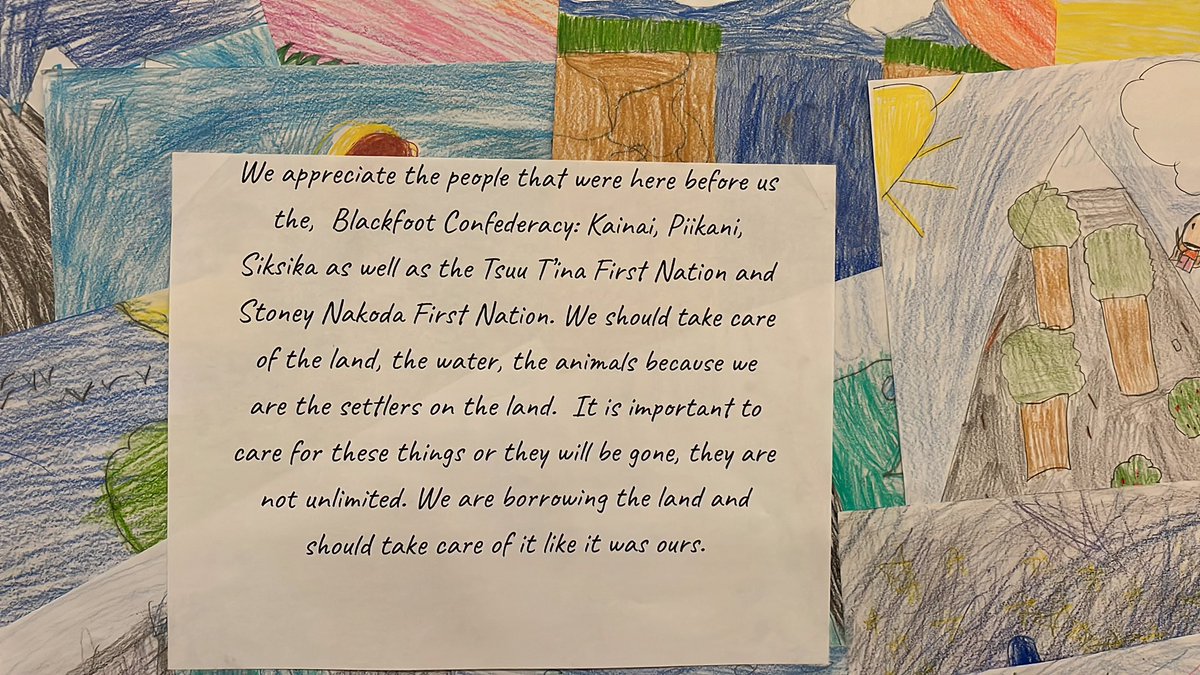 We appreciate the people that were here before us
the,  Blackfoot Confederacy: Kainai, Piikani,
Siksika as well as the Tsuu T'ina First Nation and
Stoney Nakoda First Nation. We should take care
of the land, the water, the animals because we
are the settlers on the land.  It is important to
care for these things or they will be gone, they are
not unlimited. We are borrowing the land and
should take care of it like it was ours.